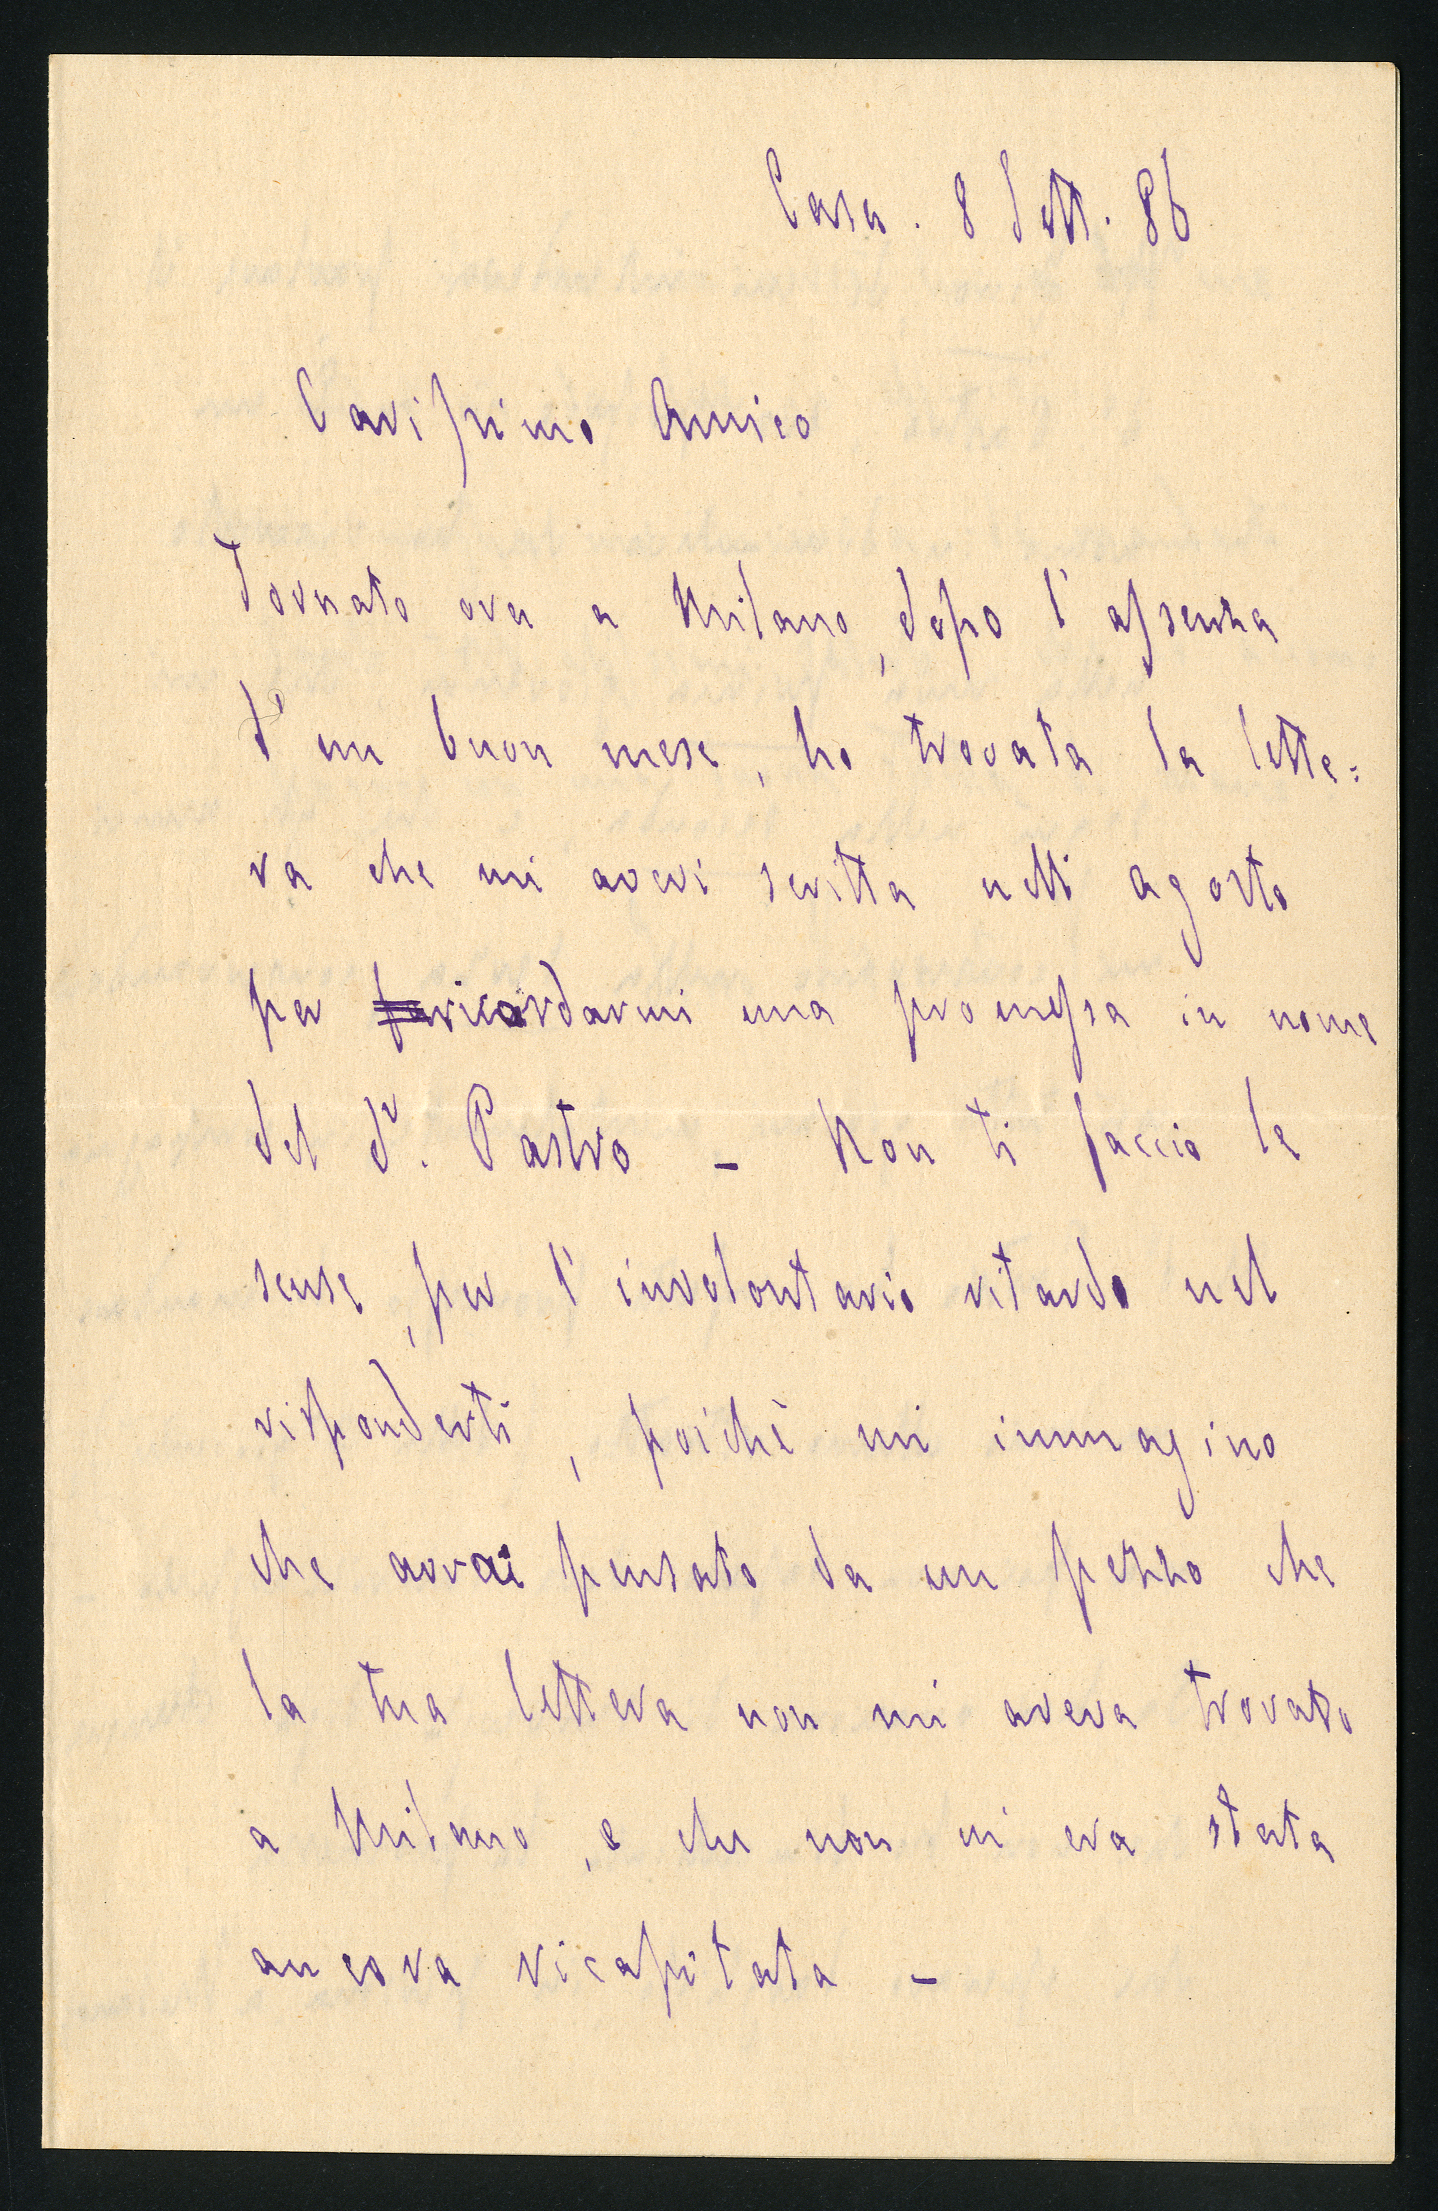 Casa. 8 Sett. 86
Carissimo Amico
Tornato ora a Milano, dopo l'assenza
d'un buon mese, ho trovata la lette=
ra che mi avevi scritta nell'agosto
per ricordarmi una promessa in nome
del dr. Pastro – Non ti faccio le
scuse, per l'involontario ritardo nel
risponderti, poichè mi immagino
che avrai pensato da un pezzo che
la tua lettera non mi aveva trovato
a Milano, e che non mi era stata
ancora ricapitata –